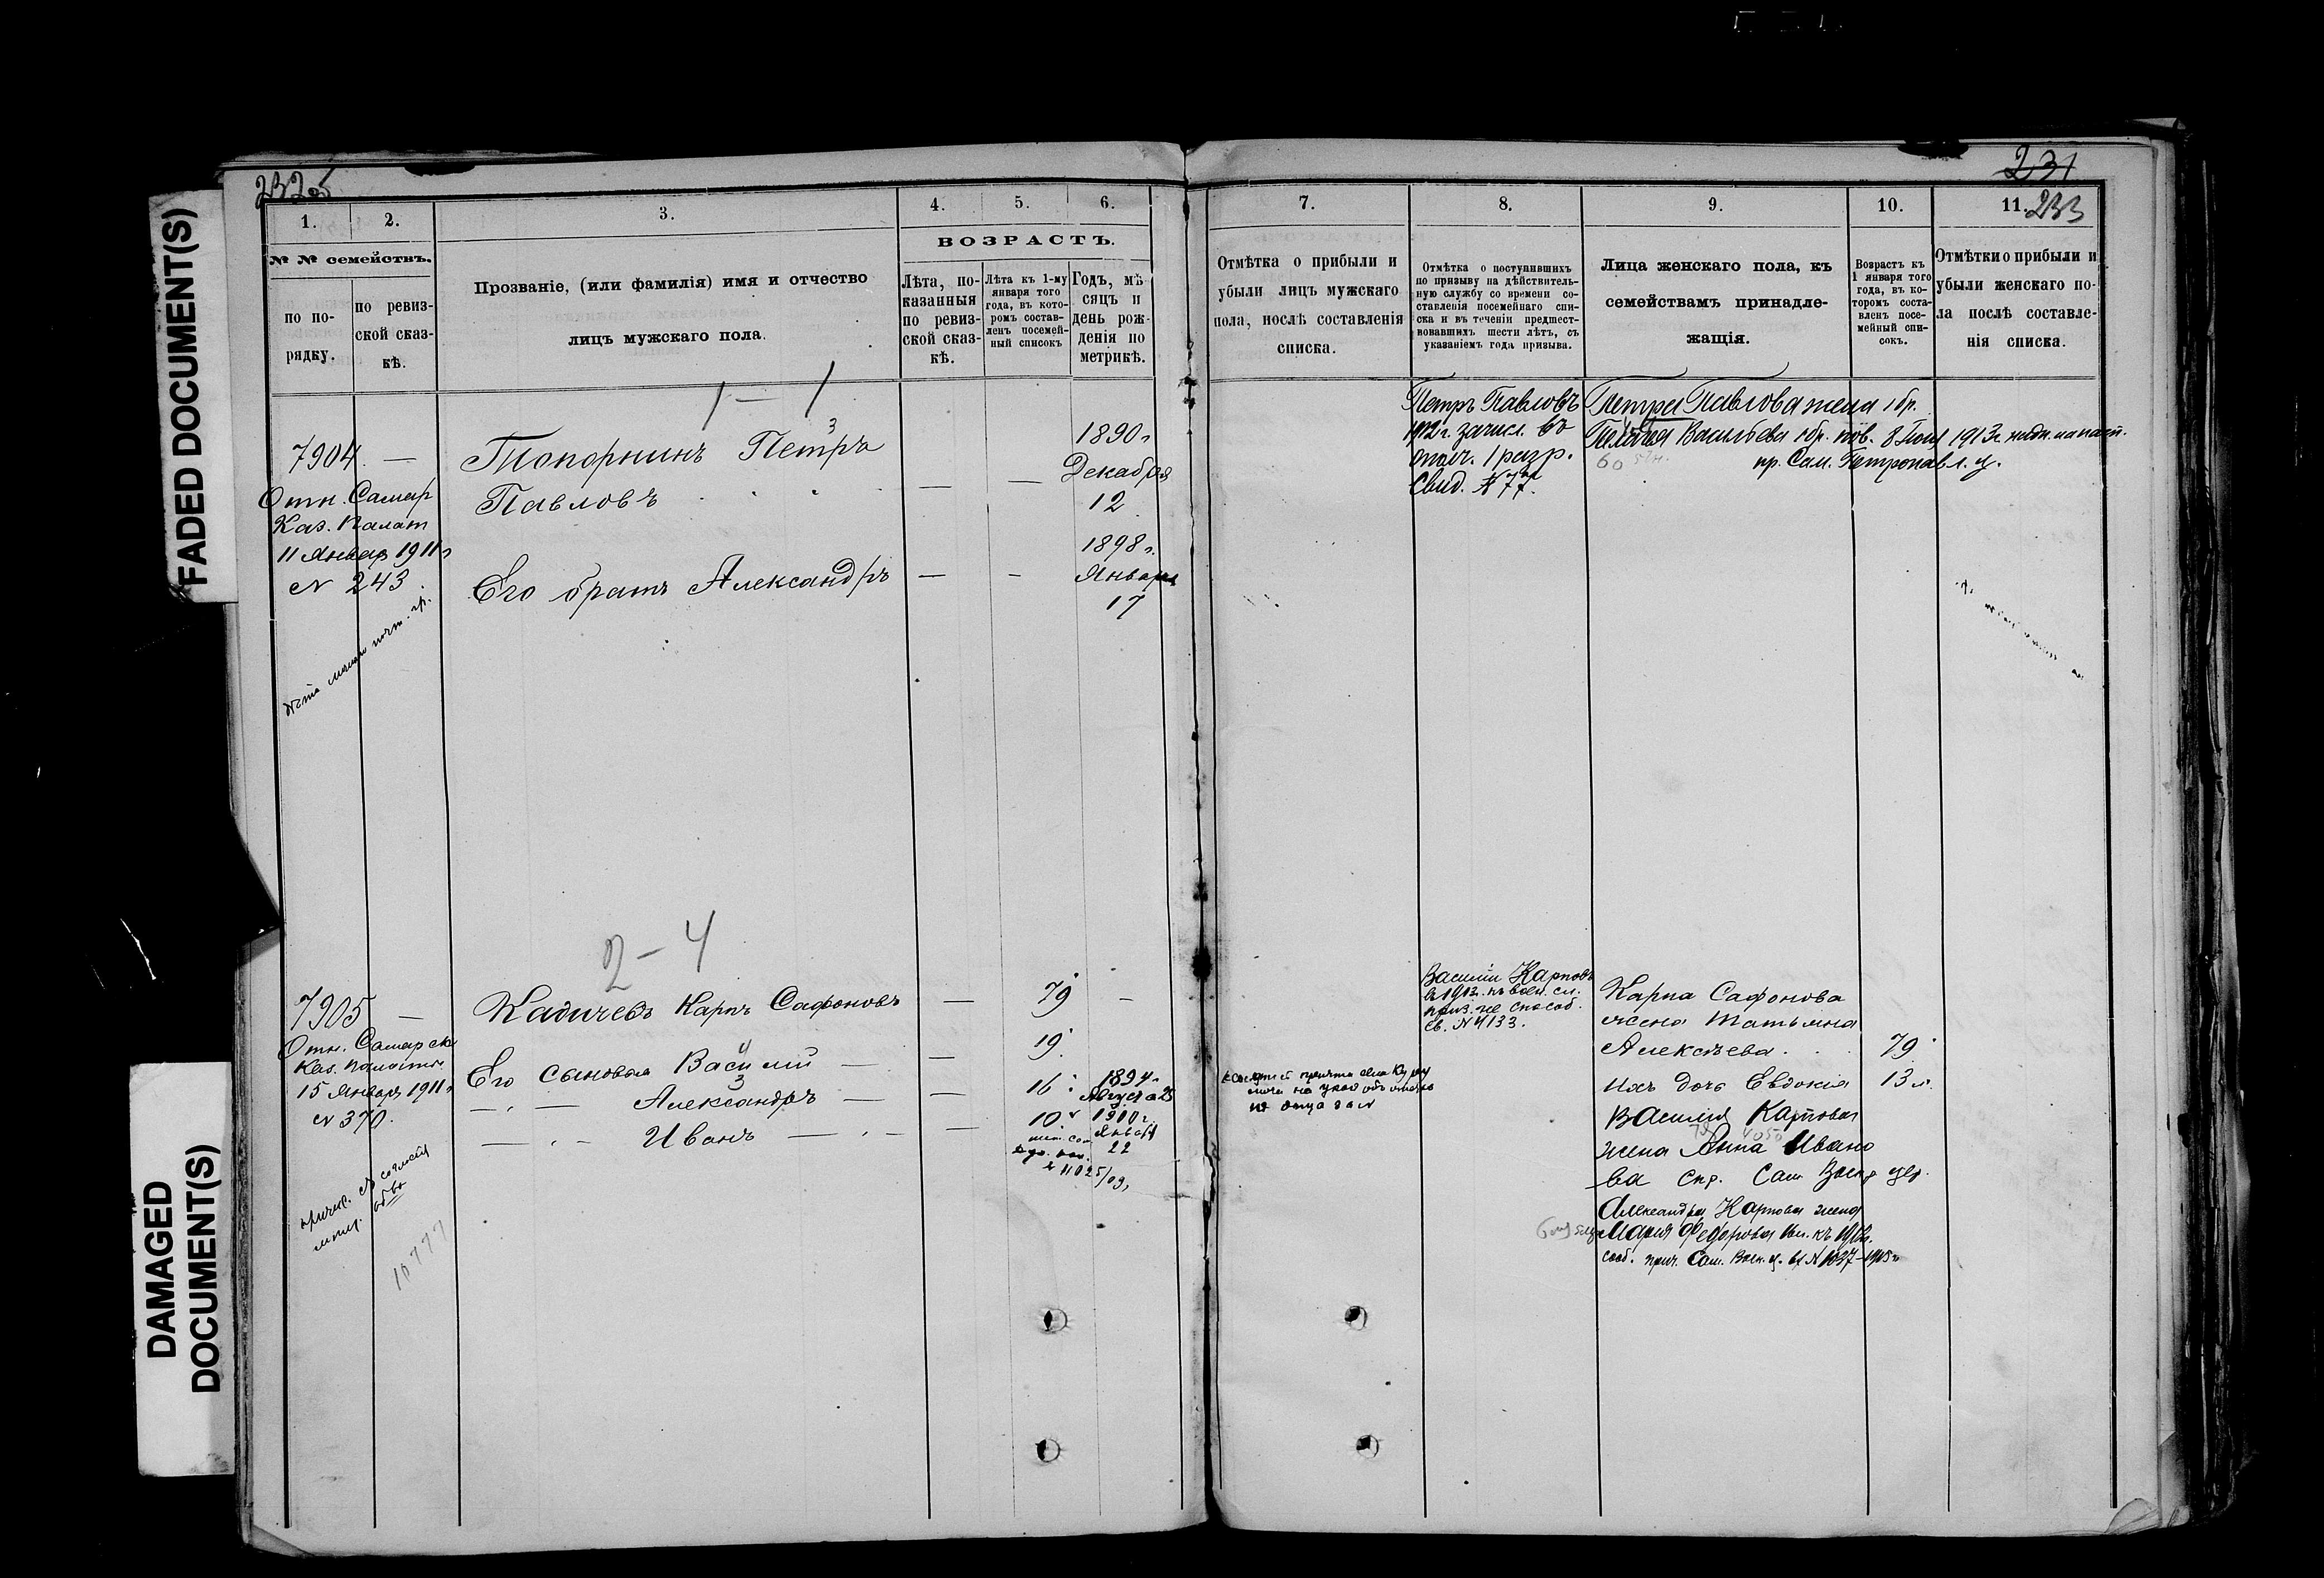 FADED DOCUMENT(S)
DAMAGED
DOCUMENT(S)
232об
1.
2.
3.
4.
5.
6.
№ № семействъ.
по по-
рядку.
по ревиз-
ской сказ-
кѣ.
Прозваніе, (или фамилія) имя и отчество
лицъ мужскаго пола.
ВОЗРАСТЪ.
Лѣта, по-
казанныя
по ревиз-
ской сказ-
кѣ.
Лѣта къ 1-му
января того
года, въ кото-
ромъ состав-
ленъ посемей-
ный списокъ
Годъ, мѣ-
сяцъ и
день рож-
денія по
метрикѣ.
1 — 1
7904 —
Отн. Самар
Каз. Палат
11 Январ 1911 г
N 243.
3
Топорнинъ Петръ
Павловъ
— —
1890 г
Декабря
12
Его братъ Александръ
— —
1898 г.
Января
17
2 — 4
7905 —
Отн. Самарск
Каз. Палаты
15 Января 1911 г
N 370.
10777
Кадичевъ Карпъ Сафоновъ — 79 —
4
Его сыновья Василій — — 19
3
— „ — Александръ — — 16
1894 г
Августа 25
— „ — Иванъ — „ — — 10
1900 г.
Январ
22
N 11025/09,
231
233
7.
8.
9.
10.
11.
Отмѣтка о прибыли и
убыли лицъ мужскаго
пола, послѣ составленія
списка.
Отмѣтка о поступившихъ
по призыву на дѣйствитель-
ную службу со времени со-
ставленія посемейнаго спи-
ска и въ теченіи предшест-
вовавшихъ шести лѣтъ, съ
указаніемъ года призыва.
Лица женскаго пола, къ
семействамъ принадле-
жащія.
Возрастъ къ
1 января того
года, въ ко-
торомъ соста-
вленъ посе-
мейный спи-
сокъ.
Отмѣтки о прибыли и
убыли женскаго по-
ла послѣ составле-
нія списка.
Петръ Павловъ
1912 г. зачисл. въ
ополч. 1 разр.
Свид. № 77.
Петра Павлова жена
Пелагея Васильева 1913 г.
пр. Сам. Петропавл. ц.
Василій Карповъ
въ 1912 г. къ воен. сл.
призн. не способ.
св. N 4133.
Карпа Сафонова
жена Татьяна
Алексѣева. 79
Ихъ дочь Евдокія 13 л.
Василія Карпова
жена Анна Ивано
ва спр. Сам Воскр цер.
Александра Карпова жена
Марія Федорова
сооб. прич. Сам. Воск. ц. N 1037—1915 г